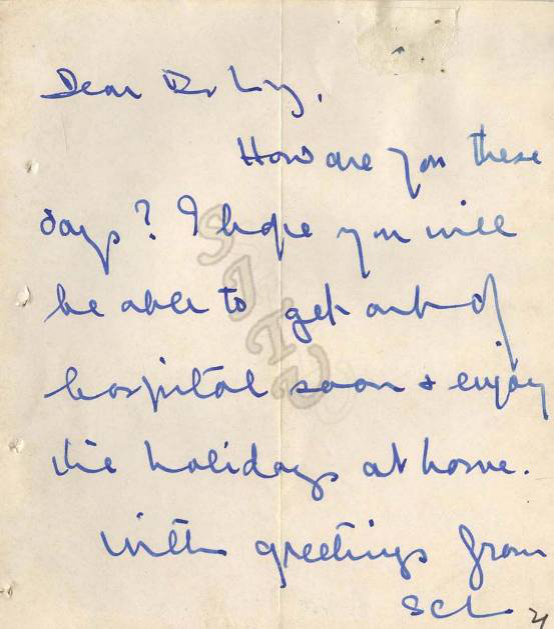 Dear Dr
How are you these
days? I hope you will
be able to get out of
hospital soon & enjoy
the holidays at home.
With greetings from
SCL